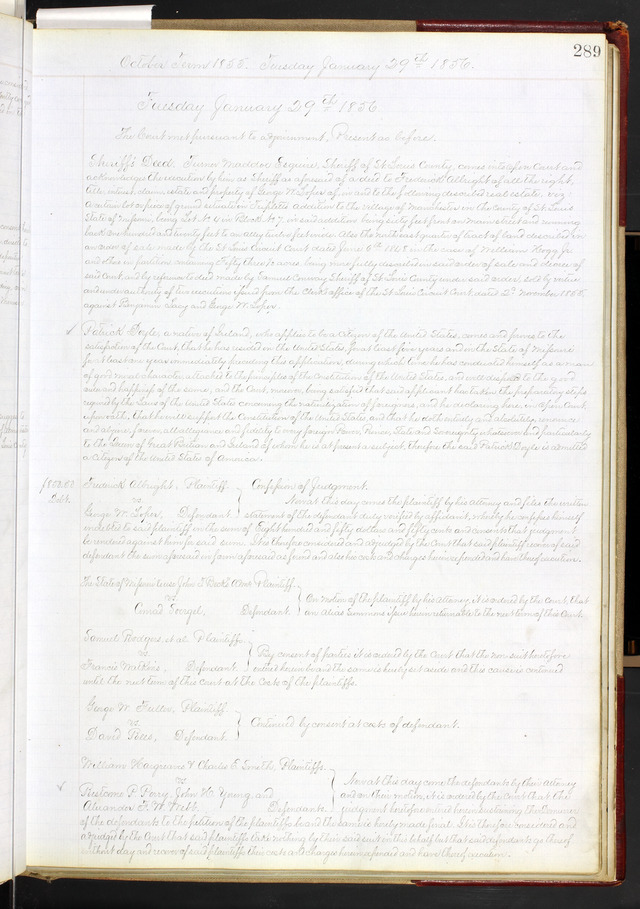 289
October Term 1855. Tuesday January 29th 1856.
Tuesday January 29th 1856
The Court met pursuant to adjournment, Present as before.
Sheriff's Deed. Turner Maddox Esquire, Sheriff of St Louis County, comes into open Court and
acknowledges the execution by him as Sheriff as aforesaid of a deed to Frederick Albright of all the right,
title, interest, claim, estate and property of George W. Lopez of, in and to the following described real estate, viz:
a certain lot or piece of ground situate in addition to the village of Manchester in the County of St Louis
State of Missouri, being Lot No in Block No in said addition being sixty feet front on main street and running
back one hundred and twenty feet to an alley feet wide. Also the northwest quarter of tract of land described in
an order of sale made by the St Louis Circuit Court dated June 6th in the case of William Hogg Jr
and others in partition containing Fifty three acres being more fully described in said order of sale and the of
said Court, and by reference to deed made by Samuel Conway Sheriff of St Louis County under said order, sold by virtue
and under authority of two executions issued from the Clerk's office of the St Louis Circuit Court, dated 2d November 1855,
against Benjamin and George W. Lopez.
Patrick Doyle, a native of Ireland, who applies to be a citizen of the United States, comes and proves to the
satisfaction of the Court, that he has resided in the United States, for at least five years and in the State of Missouri
for at least one year immediately preceding this application, during which time he has conducted himself as a man
of good moral character, attached to the principles of the Constitution of the United States, and well disposed to the good
order and happiness of the same, and the Court, moreover, being satisfied that said applicant has taken the preparatory steps
required by the laws of the United States concerning the naturalization of foreigners, and he declaring here, in open Court,
upon oath, that he will support the Constitution of the United States, and that he doth entirely and absolutely renounce
and abjure forever, all allegiance and fidelity to every foreign Power, Prince, State and Sovereignty whatsoever and particularly
to the Queen of Great Britain and Ireland of whom he is at present a subject, therefore the said Patrick Doyle is admitted
a citizen of the United States of America.
$858.50
Debt.
Frederick Albright, Plaintiff. } Confession of Judgment.
vs. Now at this day comes the plaintiff by his Attorney and files the written
George W. Lopez, Defendant. statement of the defendant duly verified by affidavit, whereby he confesses himself
indebted to said plaintiff in the sum of Eight hundred and fifty dollars and fifty cents and consents that judgment
be rendered against him for said sum. It is therefore considered and adjudged by the Court that said plaintiff recover of said
defendant the sum aforesaid in form aforesaid so found and also his costs and charges herein expended and have thereof execution.
The State of Missouri to use John Plaintiff.
vs. } On motion of the plaintiff by his Attorney, it is ordered by the Court, that
Conrad Defendant. an alias summons issue herein returnable to the next term of this Court.
Samuel Bodges et al. Plaintiffs
vs. } By consent of parties it is ordered by the Court that the non suit heretofore
Francis Defendant. entered herein be and the same is hereby set aside and this cause is continued
until the next term of this Court at the costs of the plaintiffs.
George W. Fuller, Plaintiff.
vs. } Continued by consent at costs of defendant.
David Defendant.
William Hargreaves & Charles E. Smith, Plaintiffs.
vs. } Now at this day come the defendants by their attorney
P. Perry, John W. Young, and and on their motion, it is ordered by the Court that the
Alexander F. W. Webb. Defendants. judgment heretofore entered herein sustaining the Demurrer
of the defendants to the petition of the plaintiffs be and the same is hereby made final. It is therefore considered and
adjudged by the Court that said plaintiffs take nothing by their said suit in this behalf but that said defendants go thereof
without day and recover of said plaintiffs their costs and charges herein expended and have thereof execution.